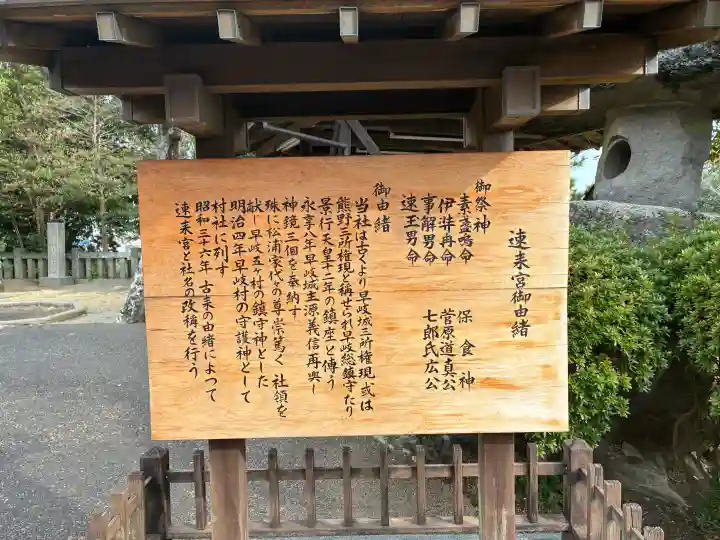 速来宮御由緒
御祭神
素盞嗚命 保食神
伊弉冉命 菅原道真公
事解男命 七郎氏広公
速玉男命
御由緒
当社は古くより早岐城三所権現或は
熊野三所権現と称せられ早岐総鎮守たり
景行天皇十二年の鎮座と傳う
永享八年早岐城主源義信再興し
神鏡三個を奉納す
殊に松浦家代々の尊崇篤く社領を
献し早岐五ヶ村の鎮守神とした
明治四年早岐村の守護神として
村社に列す
昭和三十六年古来の由緒によって
速来宮と社名の改称を行う